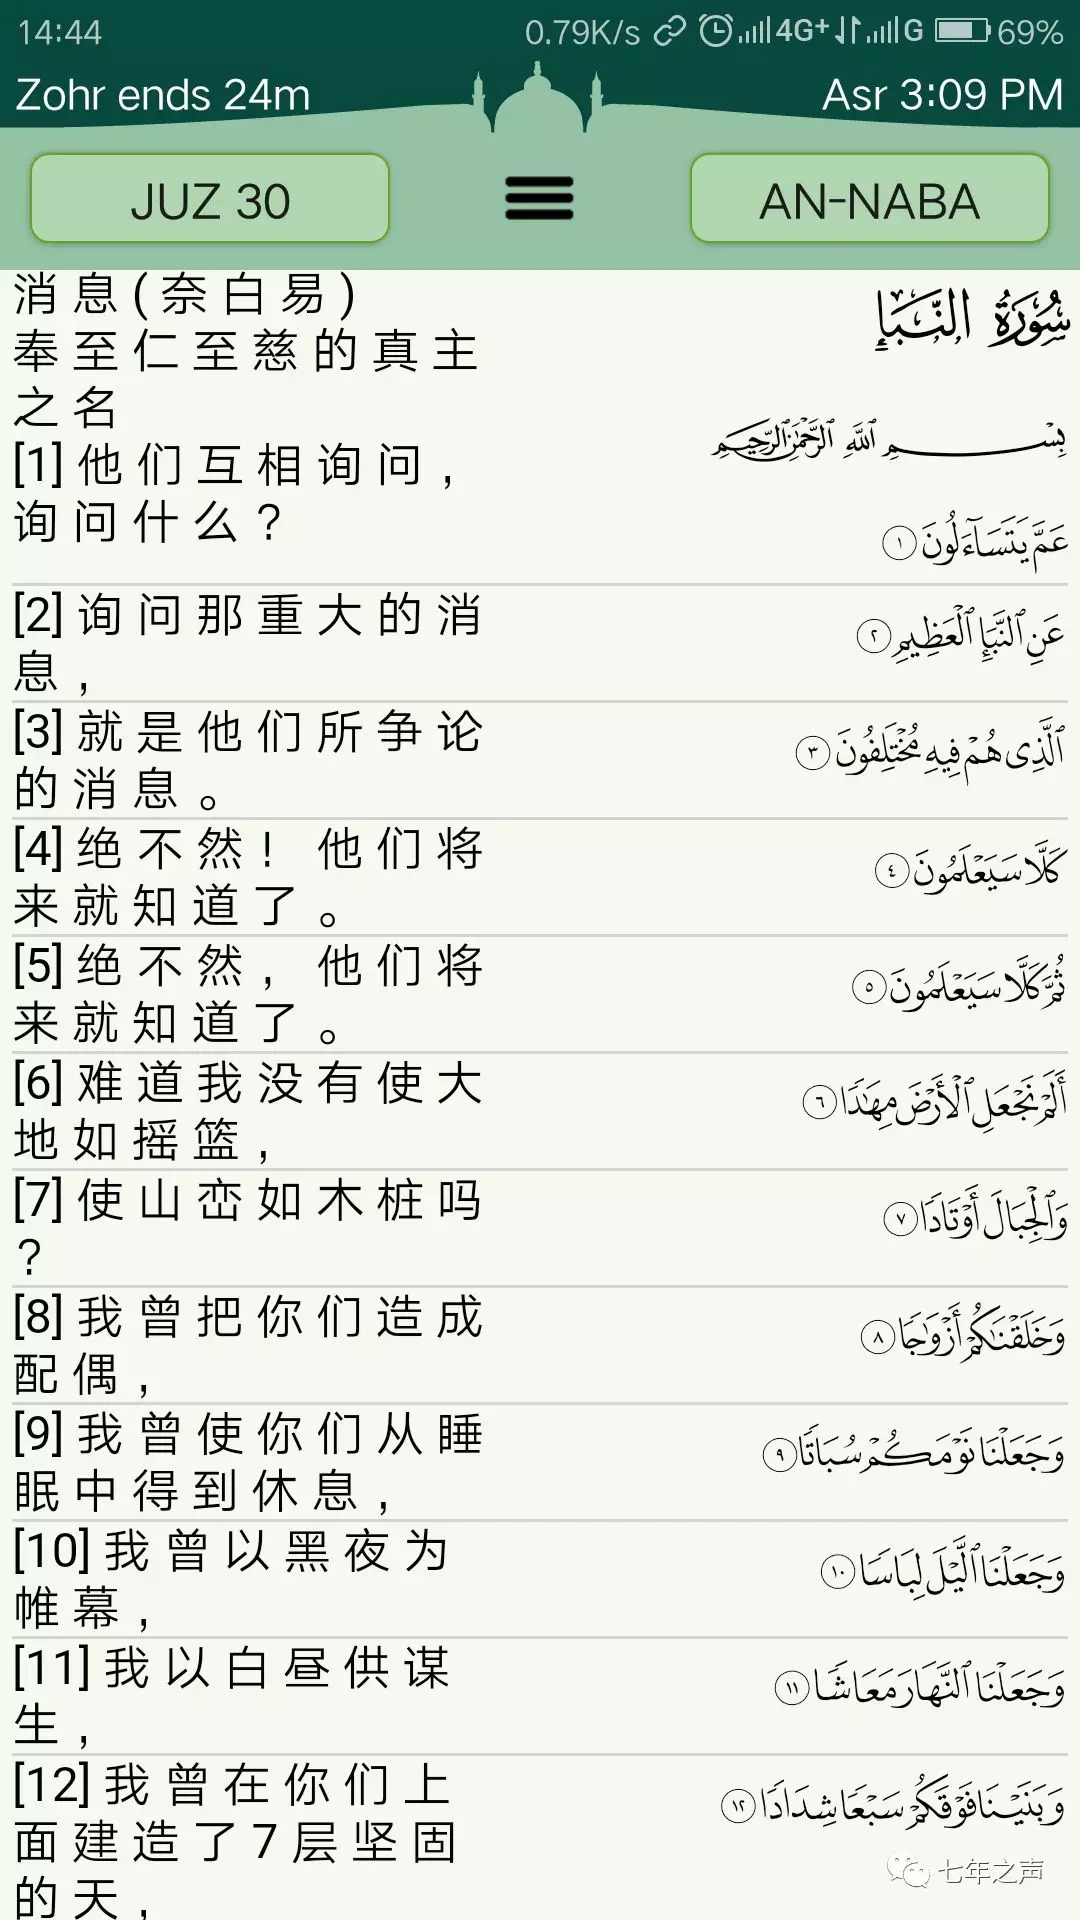 14:44 0.79K/s 4G+ G 69%
Zohr ends 24m Asr 3:09 PM
JUZ 30 AN-NABA
消息(奈白易)
奉至仁至慈的真主
之名
[1]他们互相询问，
询问什么?
سُورَةُ النَّبَإِ
بِسْمِ ٱللَّهِ ٱلرَّحْمَٰنِ ٱلرَّحِيمِ
عَمَّ يَتَسَآءَلُونَ ١
[2]询问那重大的消
息，
عَنِ ٱلنَّبَإِ ٱلْعَظِيمِ ٢
[3]就是他们所争论
的消息。
ٱلَّذِى هُمْ فِيهِ مُخْتَلِفُونَ ٣
[4]绝不然！他们将
来就知道了。
كَلَّا سَيَعْلَمُونَ ٤
[5]绝不然，他们将
来就知道了。
ثُمَّ كَلَّا سَيَعْلَمُونَ ٥
[6]难道我没有使大
地如摇篮，
أَلَمْ نَجْعَلِ ٱلْأَرْضَ مِهَٰدًا ٦
[7]使山峦如木桩吗
?
وَٱلْجِبَالَ أَوْتَادًا ٧
[8]我曾把你们造成
配偶，
وَخَلَقْنَٰكُمْ أَزْوَٰجًا ٨
[9]我曾使你们从睡
眠中得到休息，
وَجَعَلْنَا نَوْمَكُمْ سُبَاتًا ٩
[10]我曾以黑夜为
帷幕，
وَجَعَلْنَا ٱلَّيْلَ لِبَاسًا ١٠
[11]我以白昼供谋
生，
وَجَعَلْنَا ٱلنَّهَارَ مَعَاشًا ١١
[12]我曾在你们上
面建造了7层坚固
的天，
وَبَنَيْنَا فَوْقَكُمْ سَبْعًا شِدَادًا ١٢
七年之声